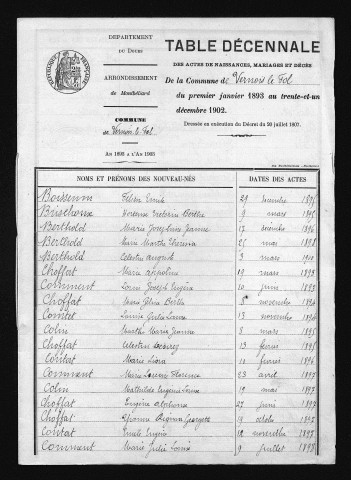 DÉPARTEMENT
DU DOUBS
ARRONDISSEMENT
de Montbéliard
COMMUNE
de Vernois le Fol
AN 1893 A L'AN 1903
RÉPUBLIQUE FRANÇAISE
TABLE DÉCENNALE
DES ACTES DE NAISSANCES, MARIAGES ET DÉCÈS
De la Commune de Vernois le Fol
du premier janvier 1893 au trente-et-un
décembre 1902.
Dressée en exécution du Décret du 20 juillet 1807.
NOMS ET PRÉNOMS DES NOUVEAU-NÉS DATES DES ACTES
Boissenin Émile 29 décembre 1895
Brischoux Victorin Berthe 9 mars 1895
Berthold Marie Joséphine Jeanne 17 décembre 1896
Berthold Marie Marthe 25 mai 1898
Berthold Célestin Auguste 3 mars
Choffat Marie 19 mars 1893
Comment Louis Joseph Eugène 10 juin 1893
Choffat Marie Berthe 5 novembre 1894
Comtet Louise Julie 13 novembre 1894
Colin Marthe Marie Jeanne 8 mars 1895
Choffat Célestin 13 février 1895
Contat Marie 10 février 1896
Comment Marie Louise Florence 23 avril 1897
Colin Mathilde Eugénie 19 mai 1897
Choffat Eugène 27 juin 1897
Choffat Georgette 19 octobre 1897
Contat Émile Eugène 12 novembre 1897
Comment Marie Julie Louise 9 juillet 1898